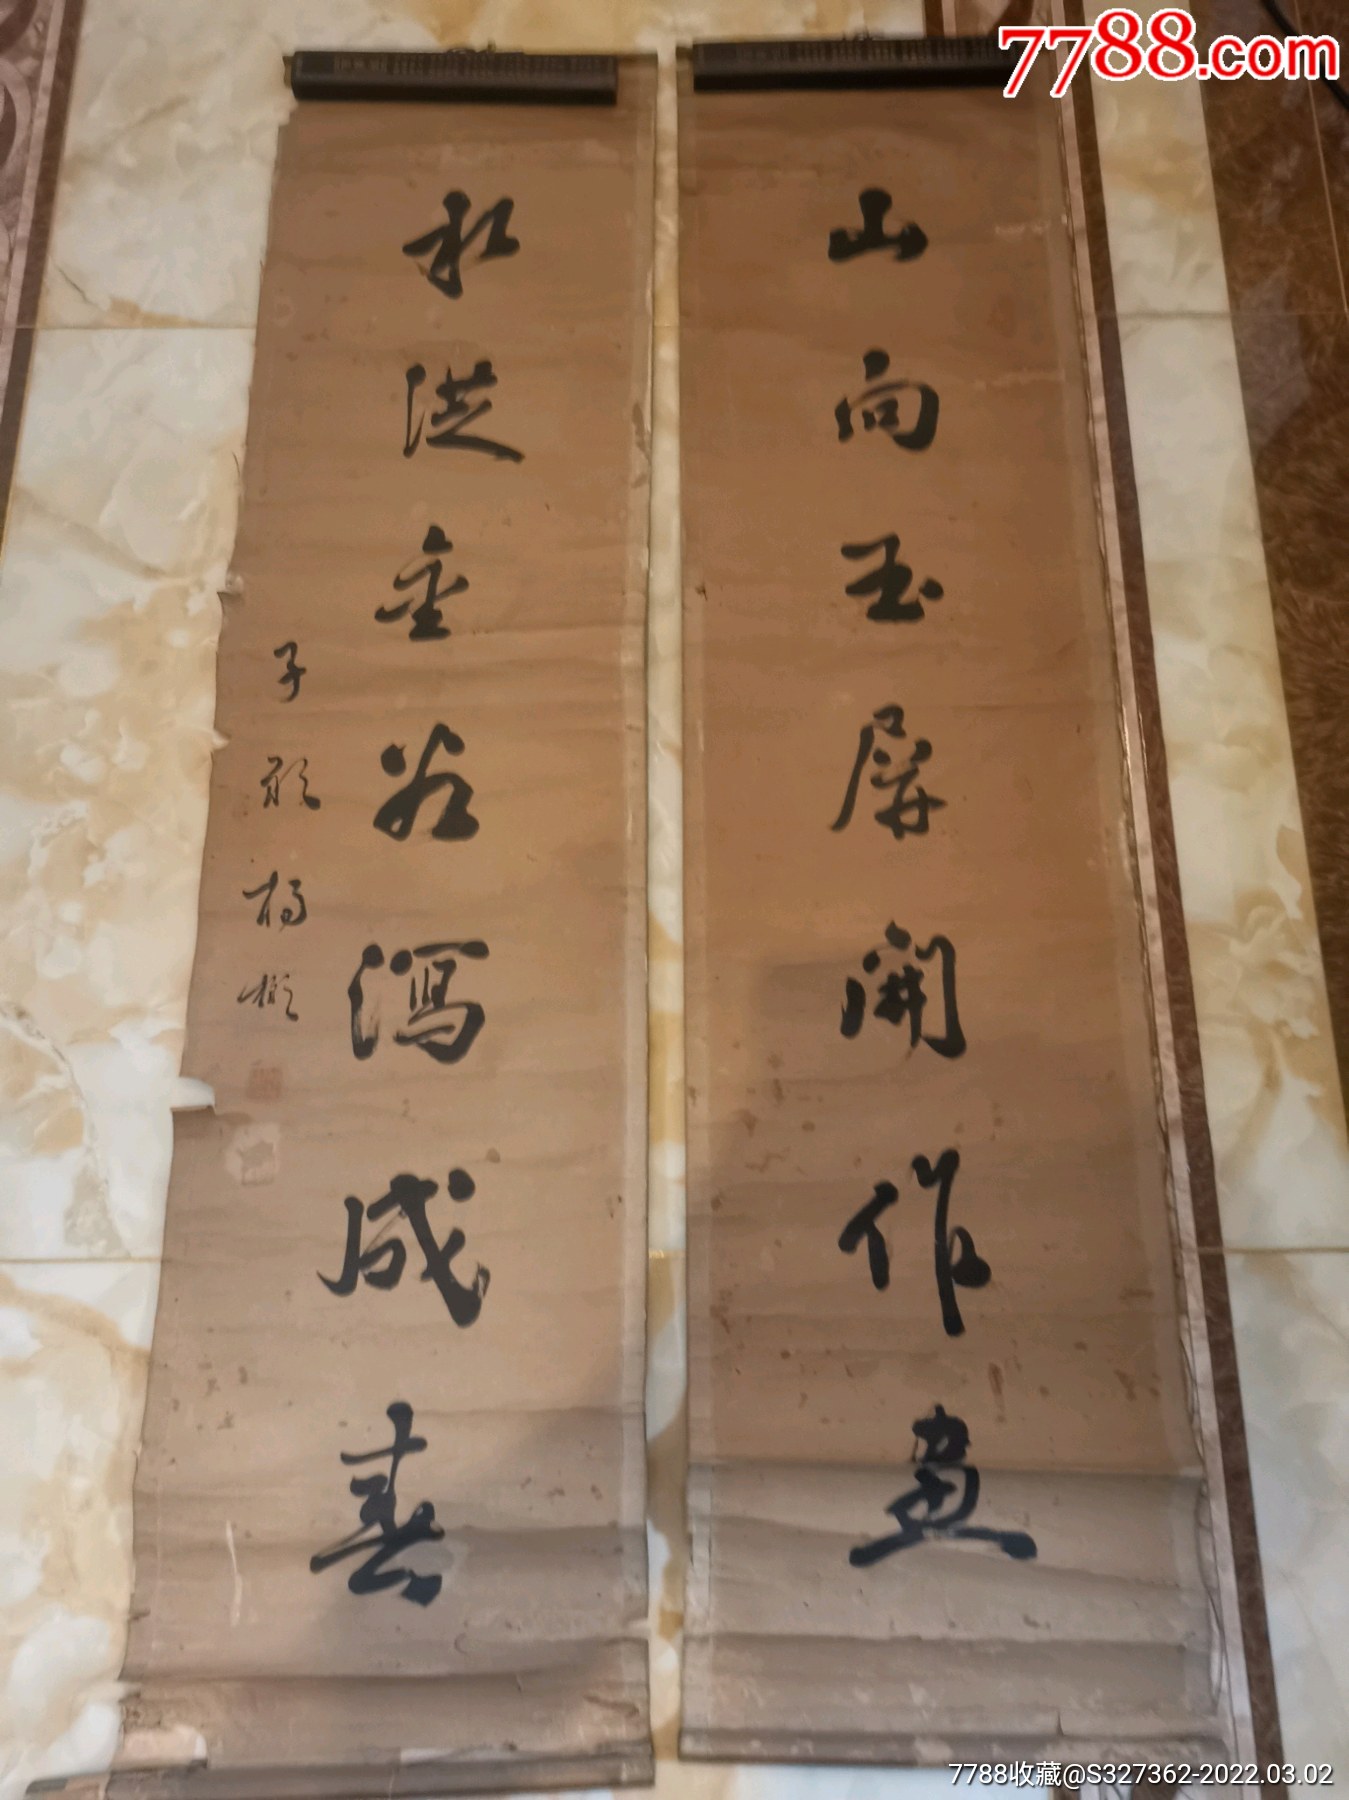 7788.com
山向玉屏開作畫
水從金谷瀉成春
子 楊
7788收藏@S327362-2022.03.02